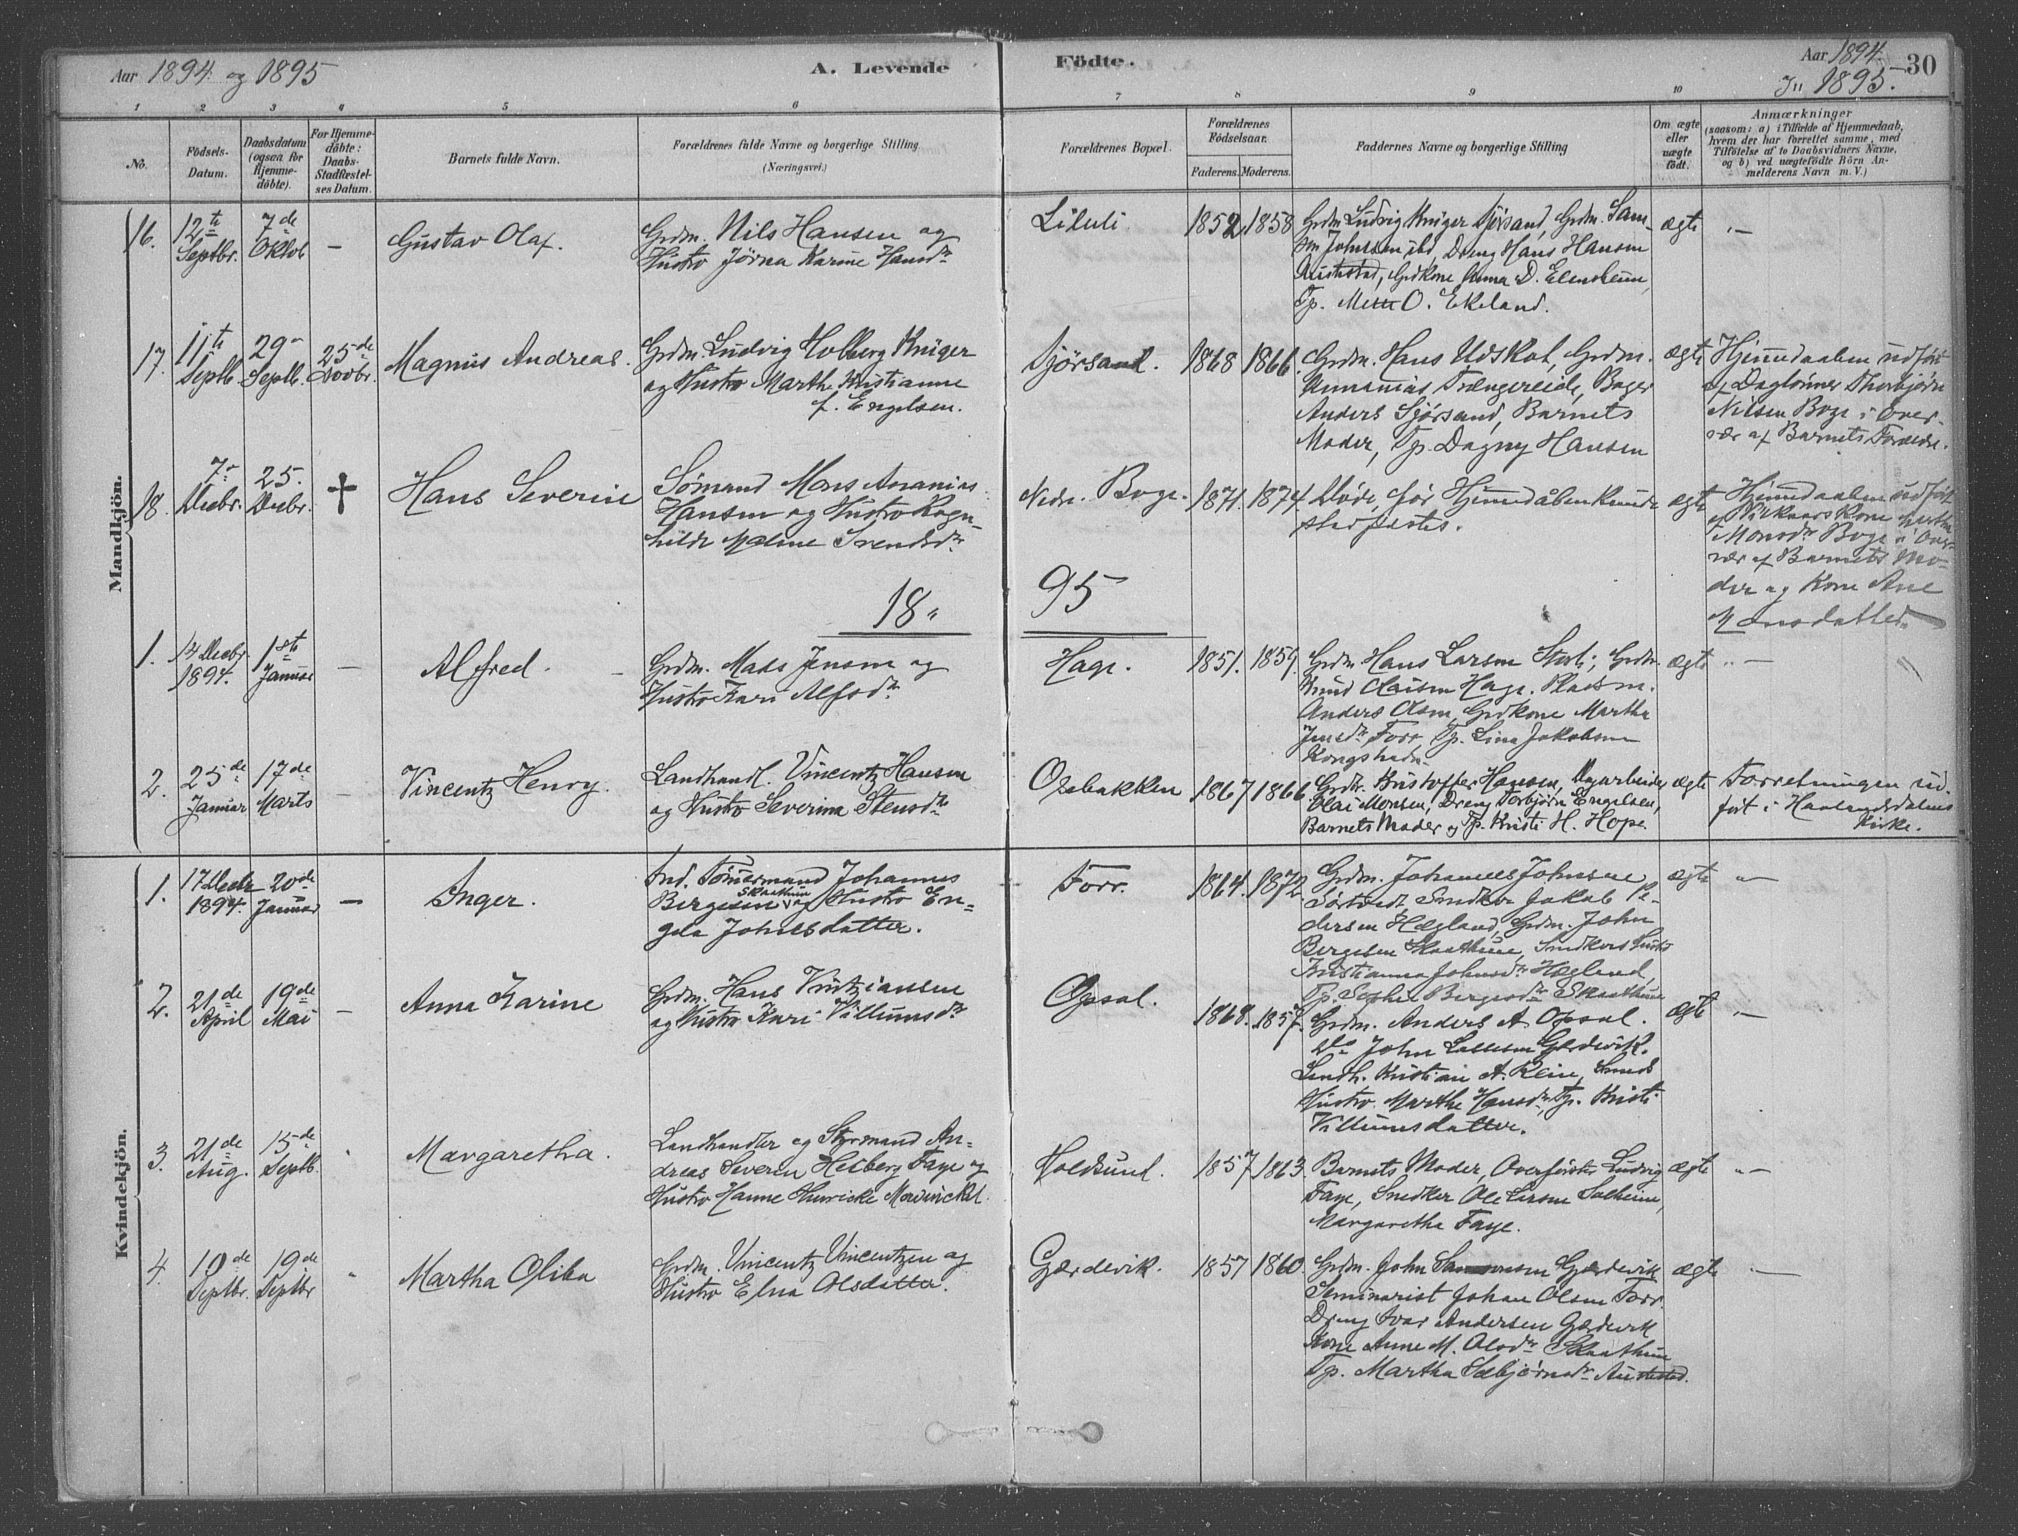 Aar 1894 og 1895
A. Levende Födte.
Aar 1894
30
1895.
1 2 3 4 5 6 7 8 9 10
No.
Födsels-
Datum.
Daabsdatum
(ogsaa for
Hjemme-
döbte).
For Hjemme-
döbte:
Daabs-
Stadfæstel-
ses Datum.
Barnets fulde Navn.
Forældrenes fulde Navne og borgerlige Stilling
(Næringsvei.)
Forældrenes Bopæl.
Forældrenes
Födselsaar.
Faderens. Moderens.
Faddernes Navne og borgerlige Stilling
Om ægte
eller
uægte
födt.
Anmærkninger
(saasom: a) i Tilfælde af Hjemmedaab,
hvem der har forrettet samme, med
Tilföielse af to Daabsvidners Navne,
og b) ved uægtefödte Börn An-
melderens Navn m. V.)
Mandkjön.
16.
12te
Septbr.
7de
Oktob
–
Gustav Olaf.
Grdm. Nils Hansen og
Hustro Jørna Karine Hansdr
Liluti
1852 1858
Grdm Ludvig Krüger Sjørsand, Grdm. Sam-
son Johnsen ibd, Dreng Hans Hansen
Austestad, Grdkone Anna D.
Tp. Mette O. Ekeland.
ægte
"–
17.
11te
Septb.
29
Septb.
25de
Novbr.
Magnus Andreas.
Grdm. Ludvig Holberg Krüger
og Hustro Marthe Kristianne
f. Engelsen.
Sjørsand.
1868 1866
Grdm. Hans Udskot, Grdm.
Ananias Trængereid, Bager
Anders Sjørsand, Barnets
Moder, Tp. Dagny Hansen
ægte
Hjemdaaben udført
af Daglönner Thorbjørn
Nilsen Boge i Over-
vær af Barnets Forældre.
18
7
Decbr.
25.
Decbr.
†
Hans Severin
Sömand Mons Ananias
Hansen og Hustro Ragn-
hilde Malene Svendsdr
Nedr. Boge.
1871. 1874.
Døde før Hjemdåben kunde
stadfæstes.
ægte
Hjemdaaben udført
af Kone
Monsdr Boge i Over-
vær af Barnets Mo-
der og Kone Ane
Monsdatter
18 "
95
1.
14 Decbr.
1894.
1ste
Januar
–
Alfred.
Grdm. Mads Jensen og
Hustro Kari Alfsdr
Hage.
1851. 1859.
Grdm Hans Larsen Grdm.
Knud Claisen Hage. Pladsm.
Anders Olsen, Grdkone Martha
Jensdr Forr, Tp. Lina Jakobsen
ægte
" –
2.
25de
Januar
17de
Marts
–
Vincentz Henry.
Landhandl. Vincentz Hansen
og Hustro Severina Stensdr
Opebakken
1867 1866
Grdr. Kristoffer Hansen, Dagarbeider
Elai Monsen, Dreng Torbjørn Engelsen,
Barnets Moder og Tp. Kristi H. Hope.
ægte
Forretningen ud-
ført i Haalandsdalens
Kirke.
Kvindekjön.
1.
17 Decbr
1894.
20de
Januar
–
Inger.
Ind. Tömmermand Johannes
Bergesen Skaathun og Hustro En-
gela Johnsdatter.
Forr.
1864. 1872
Grdm. Johannes Johnsen
Sørtveit, Snedker Jakob Pe-
dersen Hægland, Grdm. John
Bergesen Skaathun, Snedkers Hustro
Kristianna Johnsdr Hægland,
Tp. Sophie Bergesdr Skaathun
ægte
" –
2.
21de
April
19de
Mai
–
Anna Karine
Grdm. Hans Vintziansen
og Hustro Kari Villumsdr
Opsal.
1868. 1857.
Grdm. Anders A Opsal.
do John Larsen Gjerdevik.
Landh. Kristian A. Rein, Smeds
Hustro. Marthe Hansdr, Tp. Kristi
Villumsdatter.
ægte
"–
3.
21de
Aug.
15de
Septb.
"
Margaretha.
Landhandler og Styrmand An-
dreas Severin Heiberg Faye og
Hustro Hanne Henricke Mowinckel.
Holdsund.
1857 1863
Barnets Moder, Overførster Ludvig
Faye, Snedker Ole Larsen Solheim,
Margaretha Faye.
ægte
" –
4.
10de
Septbr.
19de
Septbr
"
Martha Olina
Grdm. Vincentz Vincentzen og
Hustro Elna Olsdatter.
Gjærdevik.
1857 1860
Grdm. John Samsonsen Gjærdevik
Seminarist Johan Olsen Forr.
Dreng Ivar Andersen Gjærdevik
Kone Anne M. Olsdr Skaathun
Tp. Martha Sæbjørnsdr Austestad.
ægte
" –